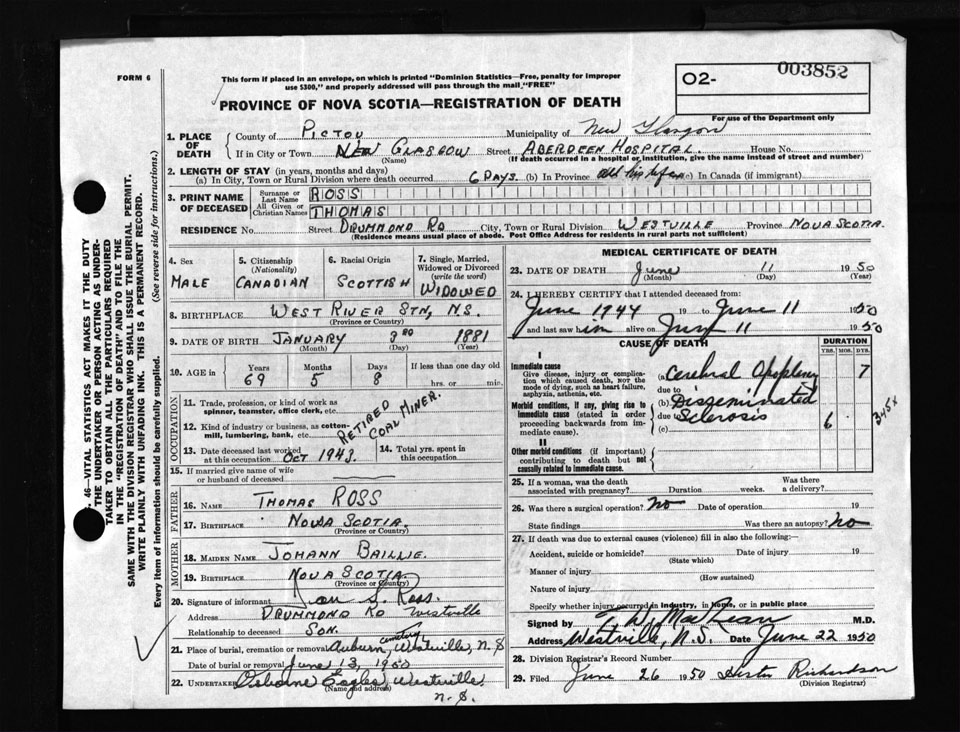 FORM 6
This form if placed in an envelope, on which is printed "Dominion Statistics—Free, penalty for improper
use $300," and properly addressed will pass through the mail "FREE"
PROVINCE OF NOVA SCOTIA—REGISTRATION OF DEATH
O2- 003852
For use of the Department only
46—VITAL STATISTICS ACT MAKES IT THE DUTY
THE UNDERTAKER OR PERSON ACTING AS UNDER-
TAKER TO OBTAIN ALL THE PARTICULARS REQUIRED
IN THE "REGISTRATION OF DEATH" AND TO FILE THE
SAME WITH THE DIVISION REGISTRAR WHO SHALL ISSUE THE BURIAL PERMIT.
WRITE PLAINLY WITH UNFADING INK. THIS IS A PERMANENT RECORD.
Every item of information should be carefully supplied. (See reverse side for instructions.)
1. PLACE OF DEATH
County of PICTOU Municipality of New Glasgow
If in City or Town NEW GLASGOW Street ABERDEEN HOSPITAL. House No.
(Name) (If death occurred in a hospital or institution, give the name instead of street and number)
2. LENGTH OF STAY (in years, months and days)
(a) In City, Town or Rural Division where death occurred 6 DAYS. (b) In Province All his life (c) In Canada (if immigrant)
3. PRINT NAME OF DECEASED
Surname or Last Name ROSS
All Given or Christian Names THOMAS
RESIDENCE No. Street DRUMMOND RD City, Town or Rural Division WESTVILLE Province NOVA SCOTIA.
(Residence means usual place of abode. Post Office Address for residents in rural parts not sufficient)
4. Sex MALE
5. Citizenship (Nationality) CANADIAN
6. Racial Origin SCOTTISH
7. Single, Married, Widowed or Divorced (write the word) WIDOWED
8. BIRTHPLACE WEST RIVER STN, N.S.
(Province or Country)
9. DATE OF BIRTH JANUARY 3RD 1881
(Month) (Day) (Year)
10. AGE in Years 69 Months 5 Days 8 If less than one day old hrs. or min.
OCCUPATION
11. Trade, profession, or kind of work as
spinner, teamster, office clerk, etc.
12. Kind of industry or business, as cotton-
mill, lumbering, bank, etc.
RETIRED COAL MINER.
13. Date deceased last worked at this occupation OCT 1943.
14. Total yrs. spent in this occupation
15. If married give name of wife
or husband of deceased
FATHER
16. NAME THOMAS ROSS
17. BIRTHPLACE NOVA SCOTIA.
(Province or Country)
MOTHER
18. MAIDEN NAME JOHANN BAILLIE.
19. BIRTHPLACE NOVA SCOTIA
(Province or Country)
20. Signature of informant S. Ross.
Address DRUMMOND RD Westville
Relationship to deceased SON.
21. Place of burial, cremation or removal Auburn cemetery, Westville, N.S
Date of burial or removal June 13, 1950
22. UNDERTAKER Osborne Eagles Westville
(Name and address) N.S.
MEDICAL CERTIFICATE OF DEATH
23. DATE OF DEATH June 11 1950
(Month) (Day) (Year)
24. I HEREBY CERTIFY that I attended deceased from:
June 1944 19 to June 11 1950
and last saw him alive on June 11 1950
CAUSE OF DEATH DURATION
YRS. MOS. DYS.
I
Immediate cause
Give disease, injury or complica-
tion which caused death, not the
mode of dying, such as heart failure,
asphyxia, asthenia, etc.
(a) Cerebral Apoplexy 7
due to
Morbid conditions, if any, giving rise to
immediate cause (stated in order
proceeding backwards from im-
mediate cause).
(b) Disseminated
due to Sclerosis 6
(c)
345X
II
Other morbid conditions (if important)
contributing to death but not
causally related to immediate cause.
25. If a woman, was the death associated with pregnancy? Duration weeks. Was there a delivery?
26. Was there a surgical operation? No Date of operation 19
State findings Was there an autopsy? No
27. If death was due to external causes (violence) fill in also the following:—
Accident, suicide or homicide? Date of injury 19
(State which)
Manner of injury
(How sustained)
Nature of injury
Specify whether injury occurred in industry, in home, or in public place
Signed by T. W. MacLean M.D.
Address Westville, N.S. Date June 22 1950
28. Division Registrar's Record Number
29. Filed June 26 1950 Hester Richardson
(Division Registrar)